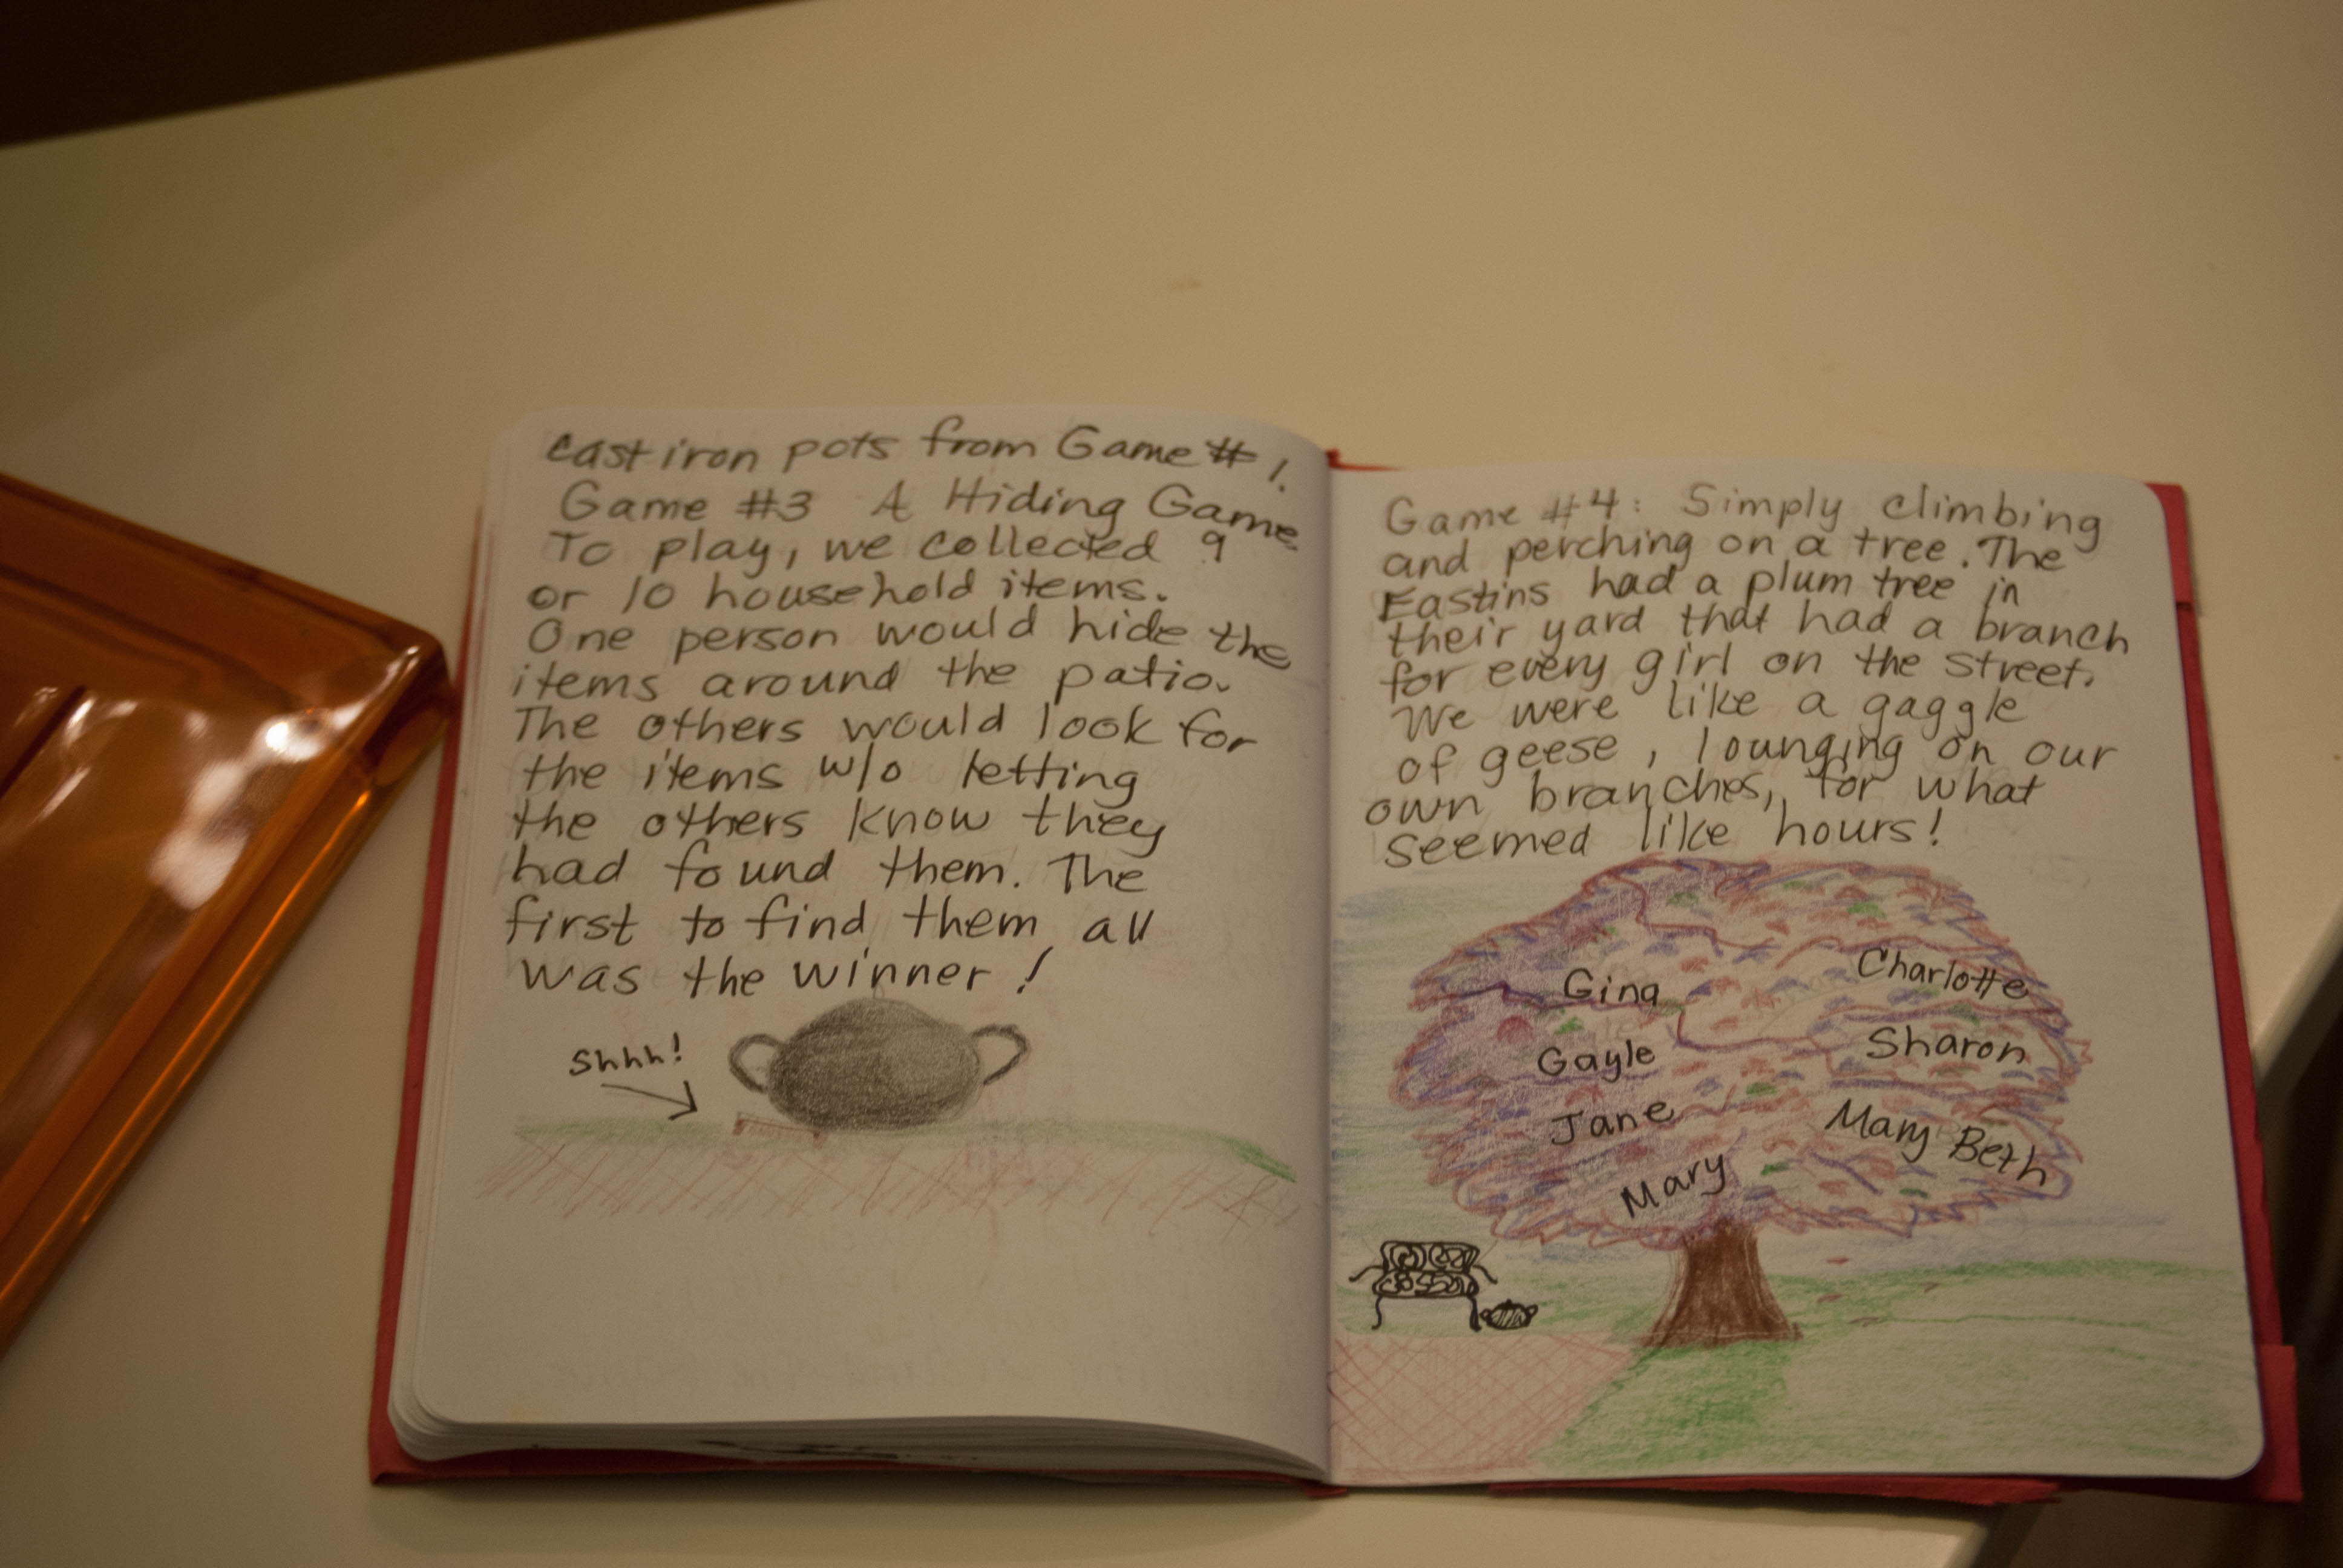 cast iron pots from Game # 1.
Game #3 A Hiding Game.
To play, we collected 9
or 10 household items.
One person would hide the
items around the patio.
The others would look for
the items w/o letting
the others know they
had found them. The
first to find them all
was the winner!
Shhh!
Game #4: Simply climbing
and perching on a tree. The
Eastins had a plum tree in
their yard that had a branch
for every girl on the street.
We were like a gaggle
of geese, lounging on our
own branches, for what
seemed like hours!
Gina
Charlotte
Gayle
Sharon
Jane
Mary Beth
Mary